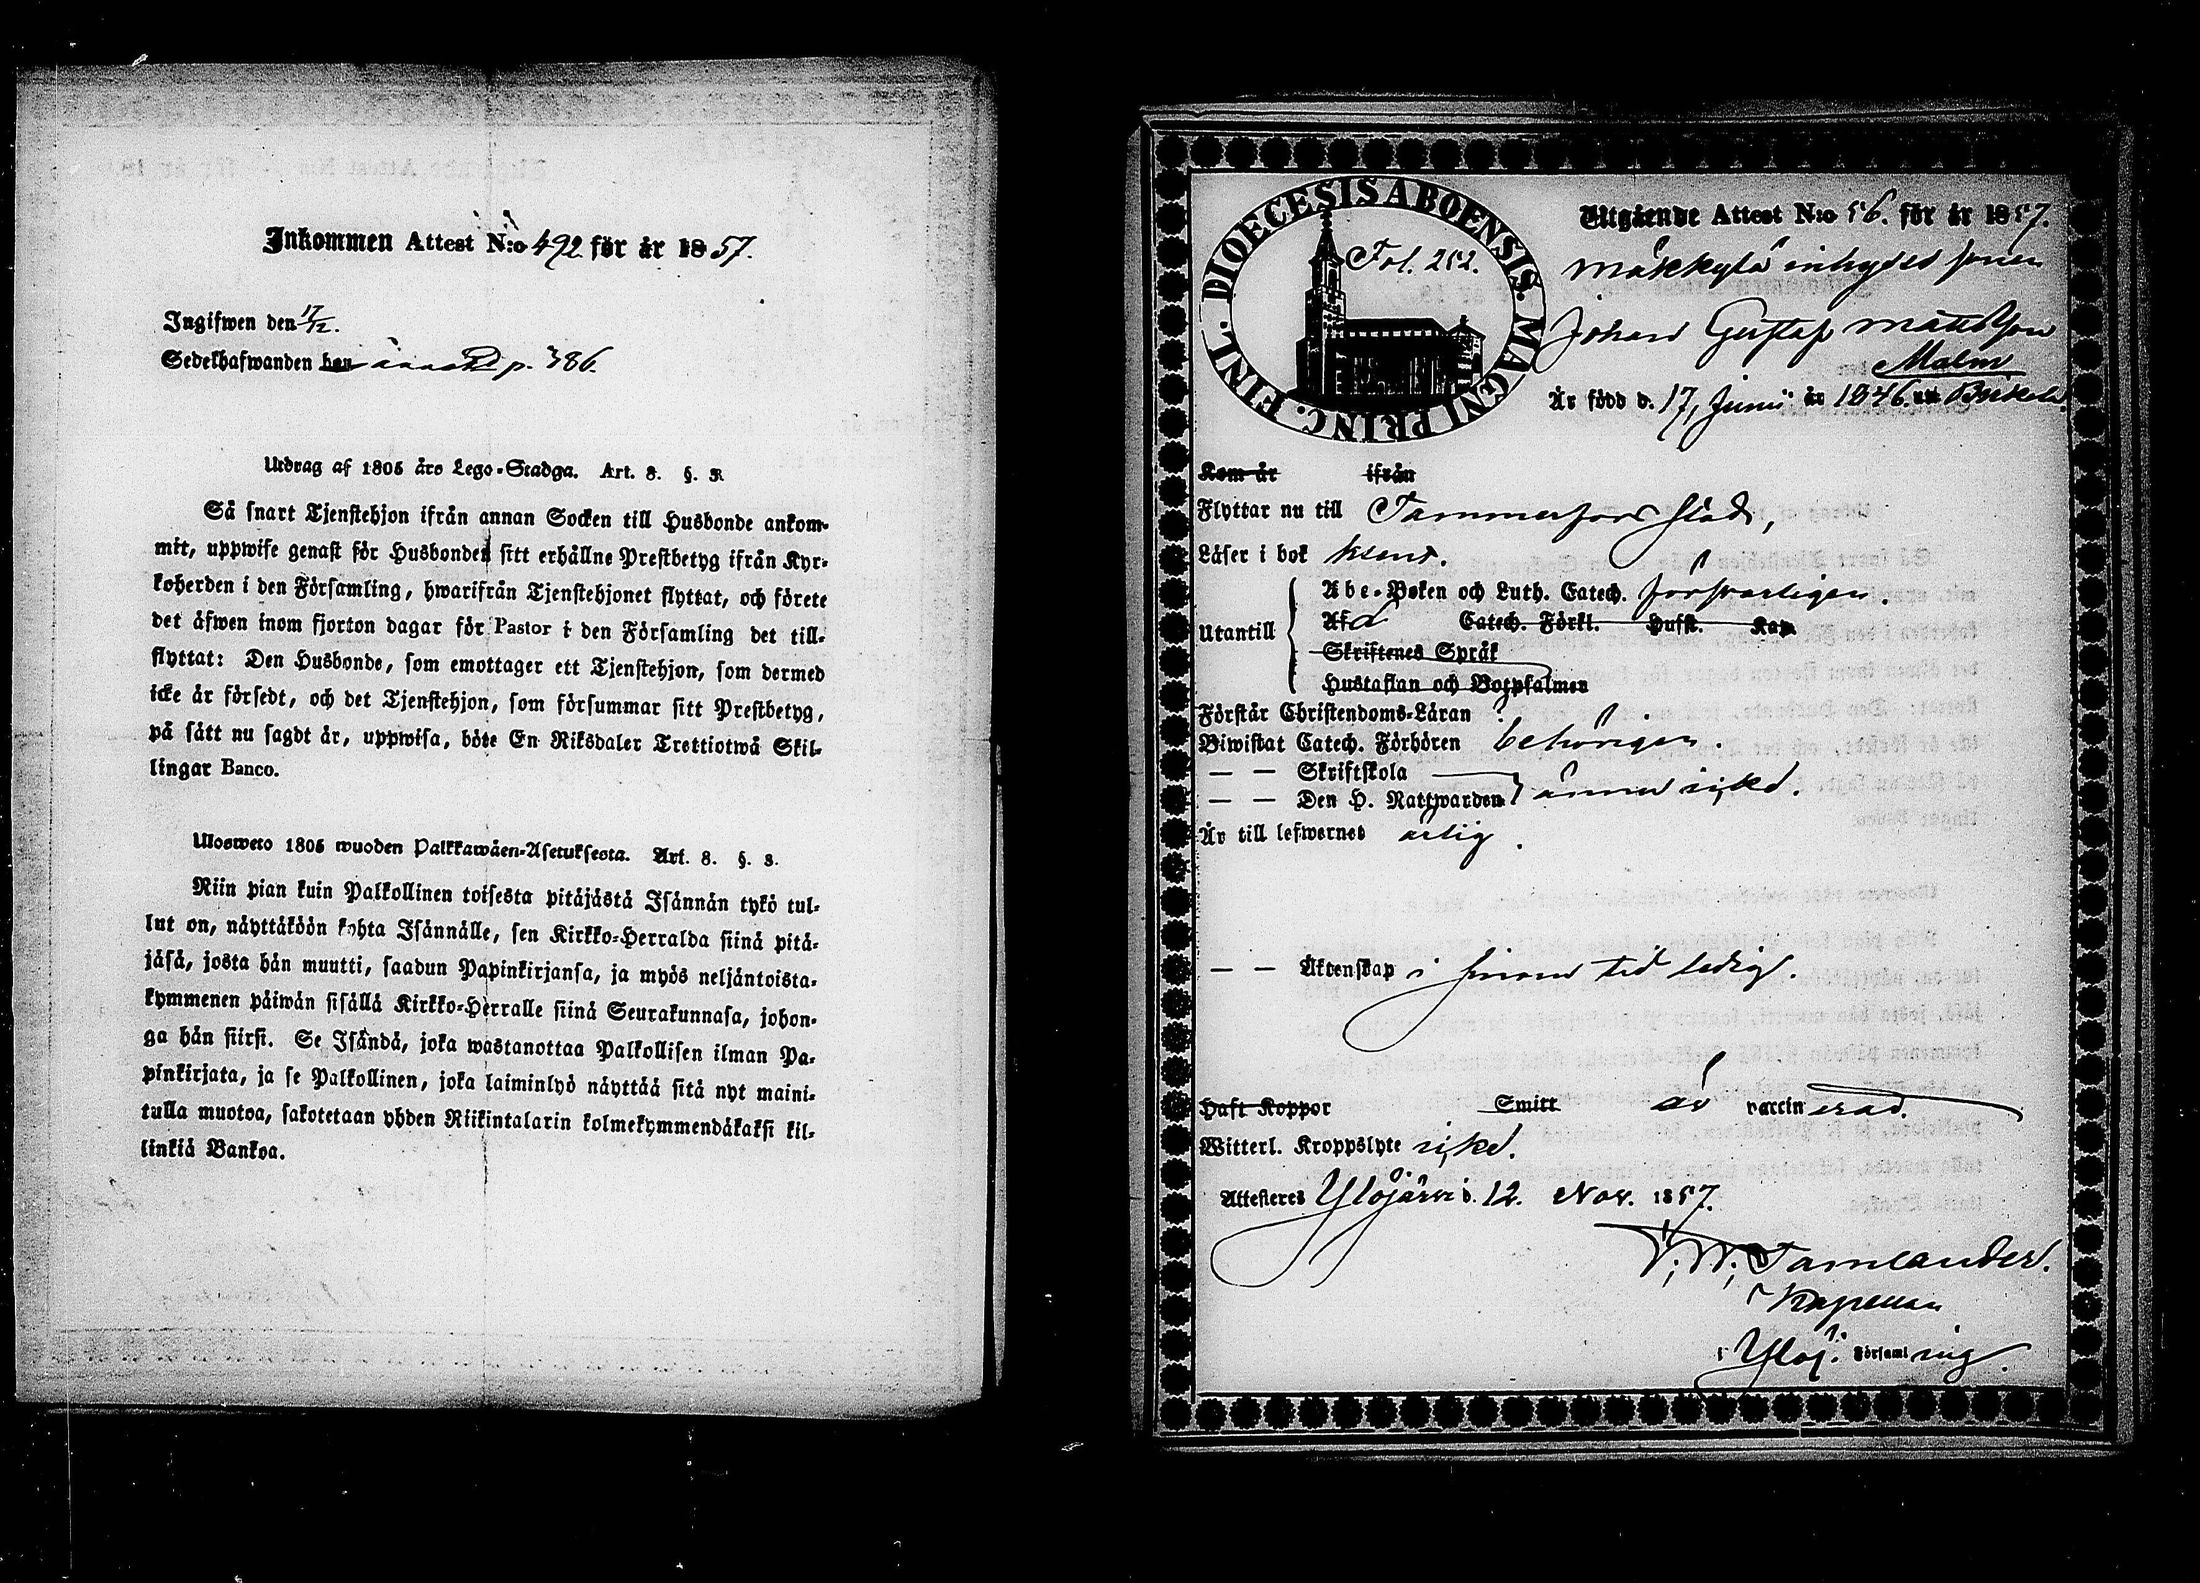 Inkommen Attest N:o 492 för år 1857.
Ingifwen den 17/12.
Sedelhafwanden p. 386.
Utdrag af 1805 års Lego-Stadga. Art. 8. §. 3.
Så snart Tjenstehjon ifrån annan Socken till Husbonde ankom-
mit, uppwise genast för Husbonden sitt erhållne Prestbetyg ifrån Kyr-
koherden i den Församling, hwarifrån Tjenstehjonet flyttat, och förete
det äfwen inom fjorton dagar för Pastor i den Församling det till-
flyttat: Den Husbonde, som emottager ett Tjenstehjon, som dermed
icke är försedt, och det Tjenstehjon, som försummar sitt Prestbetyg,
på sätt nu sagdt är, uppwisa, böte En Riksdaler Trettiotwå Skil-
lingar Banco.
Ulosweto 1805 wuoden Palkkawäen-Asetuksesta. Art. 8. §. 3.
Niin pian kuin Palkollinen toisesta pitäjästä Isännän tykö tul-
lut on, näyttäköön kohta Isännälle, sen Kirkko-Herralda siinä pitä-
jäsä, josta hän muutti, saadun Papinkirjansa, ja myös neljäntoista-
kymmenen päiwän sisällä Kirkko-Herralle siinä Seurakunnasa, johon-
ga hän siirsi. Se Isändä, joka wastanottaa Palkollisen ilman Pa-
pinkirjata, ja se Palkollinen, joka laiminlyö näyttää sitä nyt maini-
tulla muotoa, sakotetaan yhden Riikintalarin kolmekymmendäkaksi kil-
linkiä Bankoa.
DIOECESIS ABOENSIS. MAGNI PRINC. FINL.
Fol. 252.
Utgående Attest N:o 56. för år 1857.
Mäkkylä inhyses sonen
Johan Gustaf Mattsson
Malm
Är född d. 17 Junii år 1846. uti Birkala.
Kom år ifrån
Flyttar nu till Tammerfors stad,
Läser i bok
Utantill
Abc-Boken och Luth. Catech. försvarligen.
Catech. Förkl. Hust. Kap.
Skriftenes Språk
Hustaflan och Botpsalmen
Förstår Christendoms-Läran
Biwistat Catech. Förhören behörigen.
— — Skriftskola
— — Den H. Nattwarden ännu icke.
Är till lefwernes ärlig.
— — Äktenskap i sinom tid ledig.
Haft Koppor Smitt är vaccinerad.
Witterl. Kroppslyte icke.
Attesteres Ylöjärvi d. 12 Nov. 1857.
Tamlander.
Kapellan
i Ylöj. Församling.